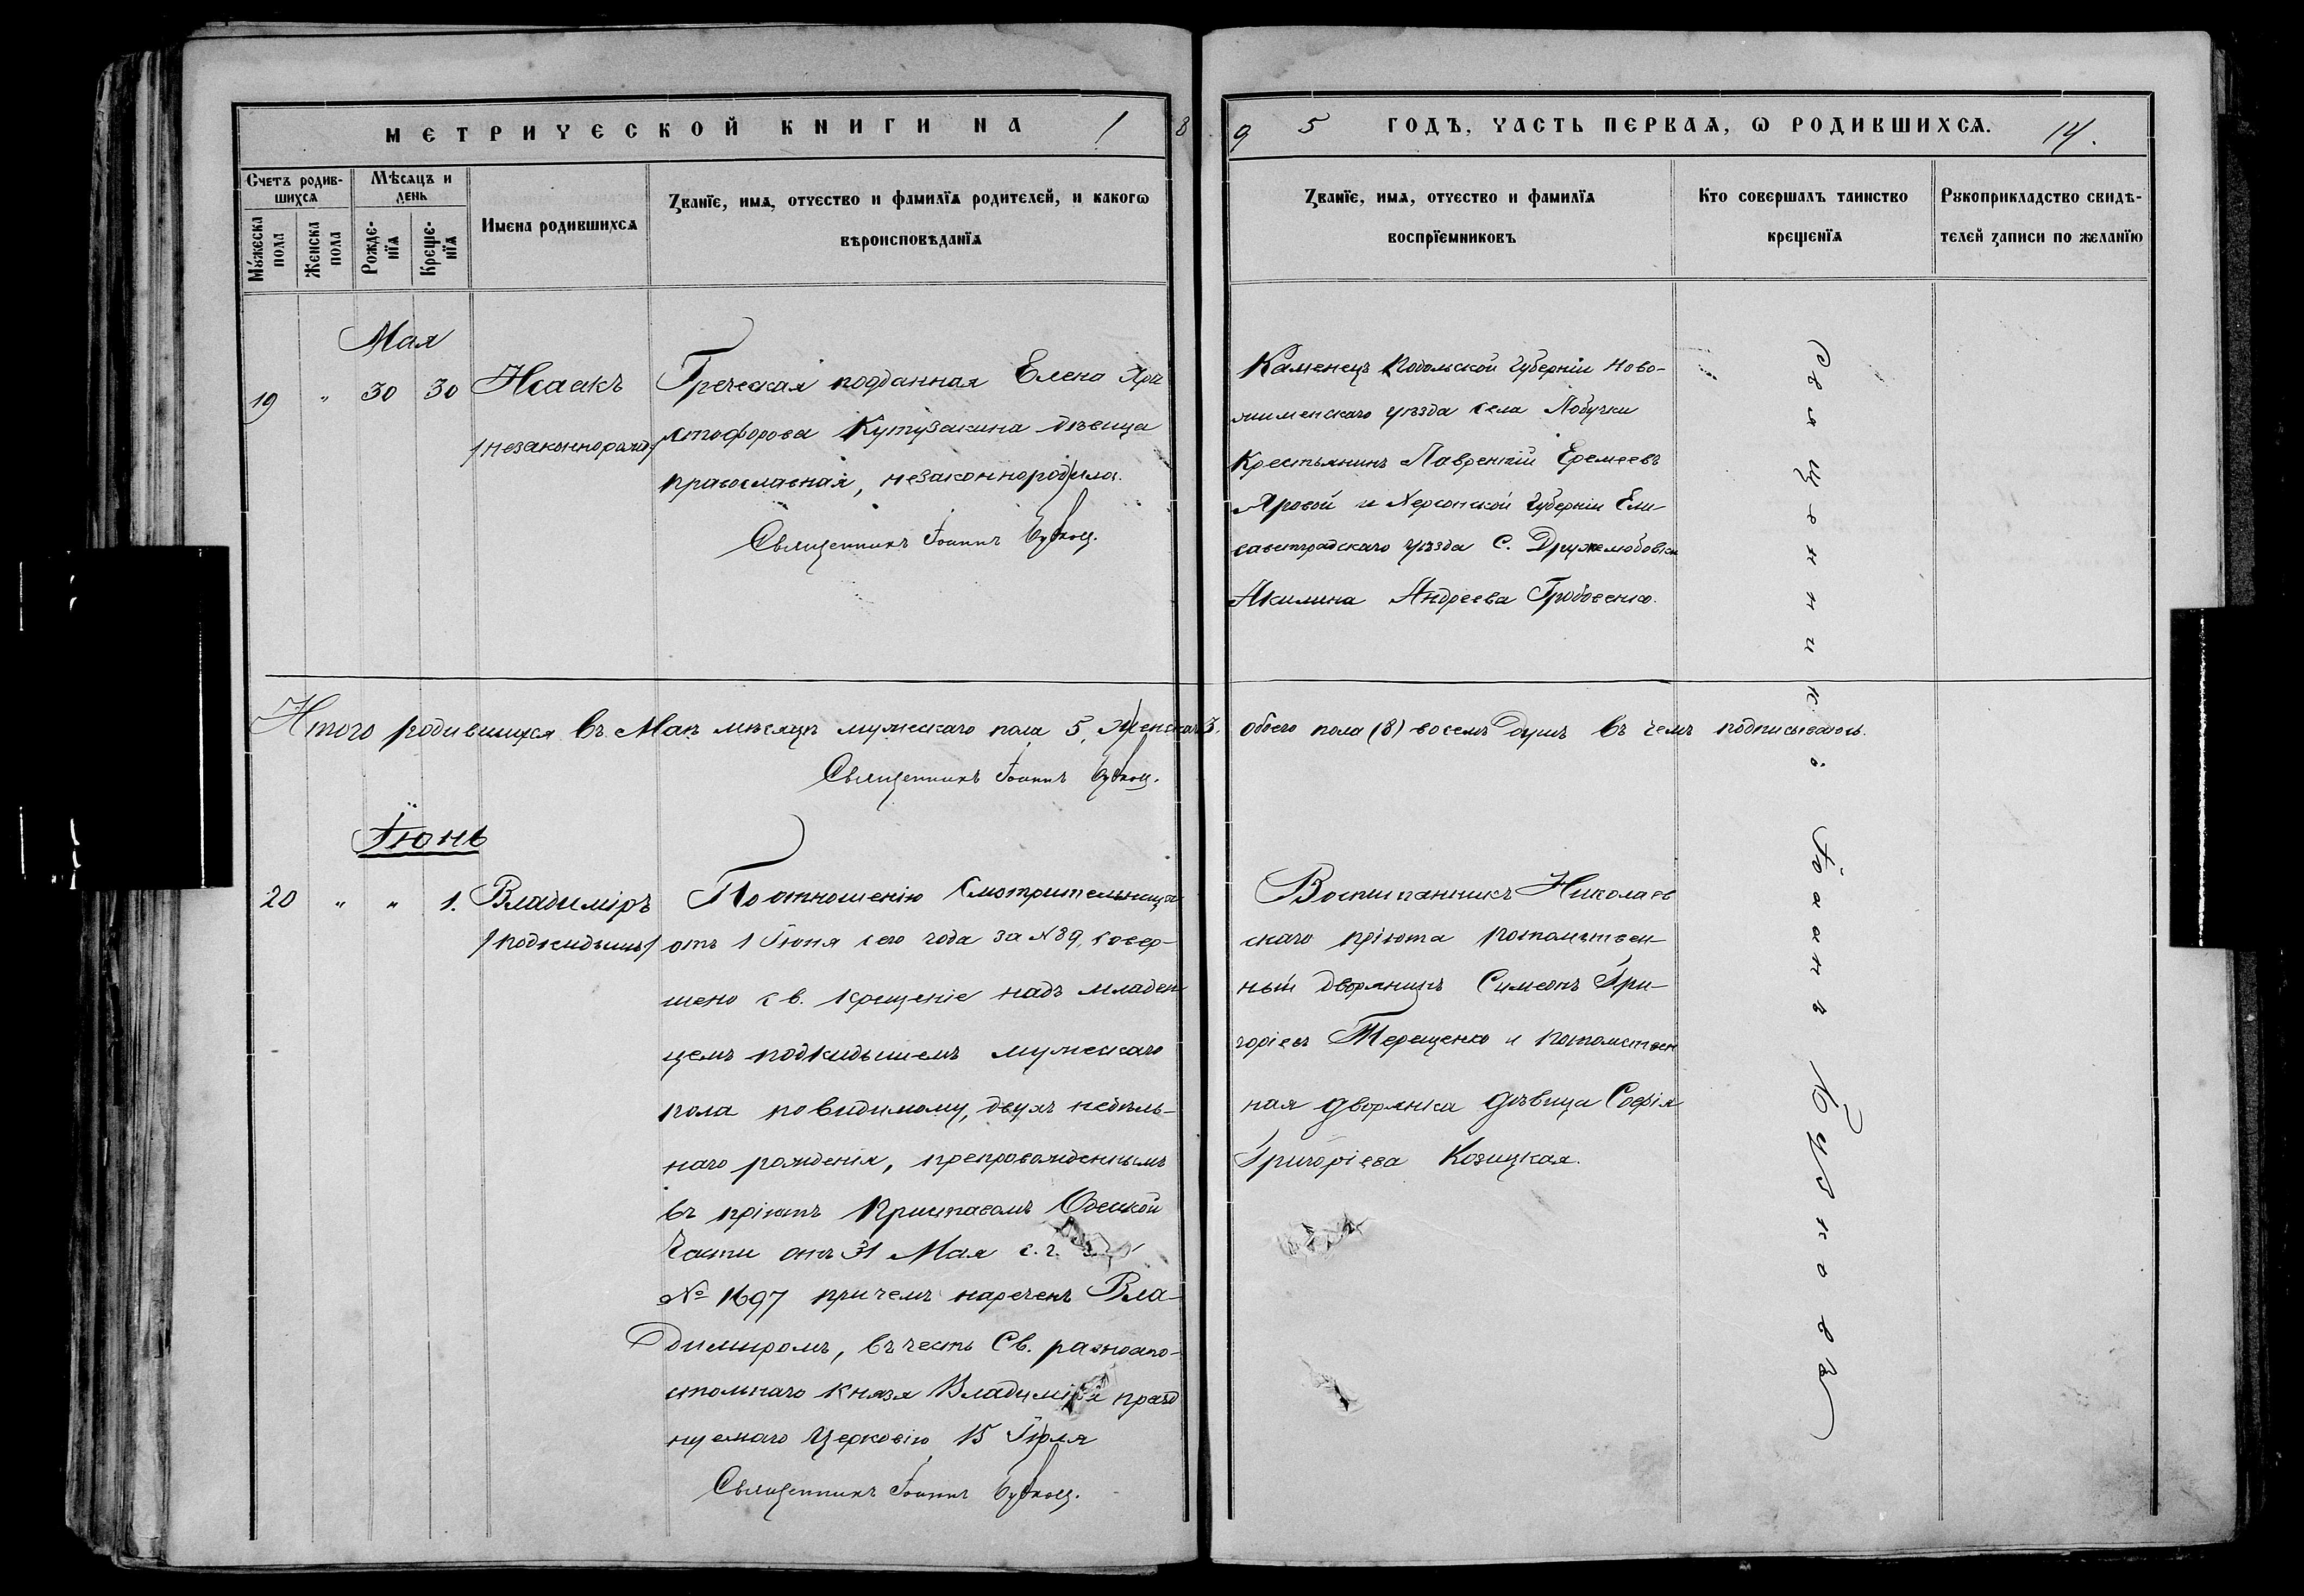 МЕТРИЧЕСКОЙ КНИГИ НА 18
95 ГОДЪ, ЧАСТЬ ПЕРВАЯ, Ѡ РОДИВШИХСЯ. 14.
Счетъ родив-
шихся
Мѣсяцъ и
день
Мꙋжеска
пола
Женска
пола
Рожде-
нїя
Креще-
нїя
Имена родившихся
Званїе, имя, отчество и фамилїя родителей, и какогѡ
вѣроисповѣданїя
Званїе, имя, отчество и фамилїя
воспрїемниковъ
Кто совершалъ таинство
крещенїя
Рꙋкоприкладство свидѣ-
телей записи по желанїю
Мая
19 " 30 30 Исаакъ
/незаконнорожд/
Греческая подданная Елена Хри
стофорова Кутузакина дѣвица
православная, незаконнородила.
Священникъ Іоаннъ
Каменецъ Подольской губерніи Ново-
уѣзда села Лобучки
Крестьянинъ Лаврентій Еремеевъ
Яровой и Херсонской губерніи Ели-
саветградскаго уѣзда С.
Акилина Андреева
Итого родившихся въ Маѣ мѣсяцѣ мужескаго пола 5, женскаго 3. обоего пола (8) восемь душъ въ чемъ подписываюсь.
Священникъ Іоаннъ
Іюнь
20 " " 1. Владиміръ
/подкидышъ/
По отношенію Смотрительницы
отъ 1 Іюня сего года за №89, совер-
шено св. крещеніе надъ младен
цемъ подкидышемъ мужескаго
пола повидимому, двухъ недѣль-
наго рожденія, препровожденнымъ
въ пріютъ Приставомъ Одеской
Части отъ 31 Мая с. г. за
№ 1697 причемъ нареченъ Вла-
димиромъ, въ честь Св. равноапо-
стольнаго князя Владиміра празд
нуемаго Церковію 15 Іюля
Священникъ Іоаннъ
Воспитанникъ Николаев
скаго пріюта потомствен-
ный дворянинъ Симеонъ Гри-
горіевъ Терещенко и потомствен
ная дворянка дѣвица Софія
Григоріева Козицкая.
Священникъ Іоаннъ